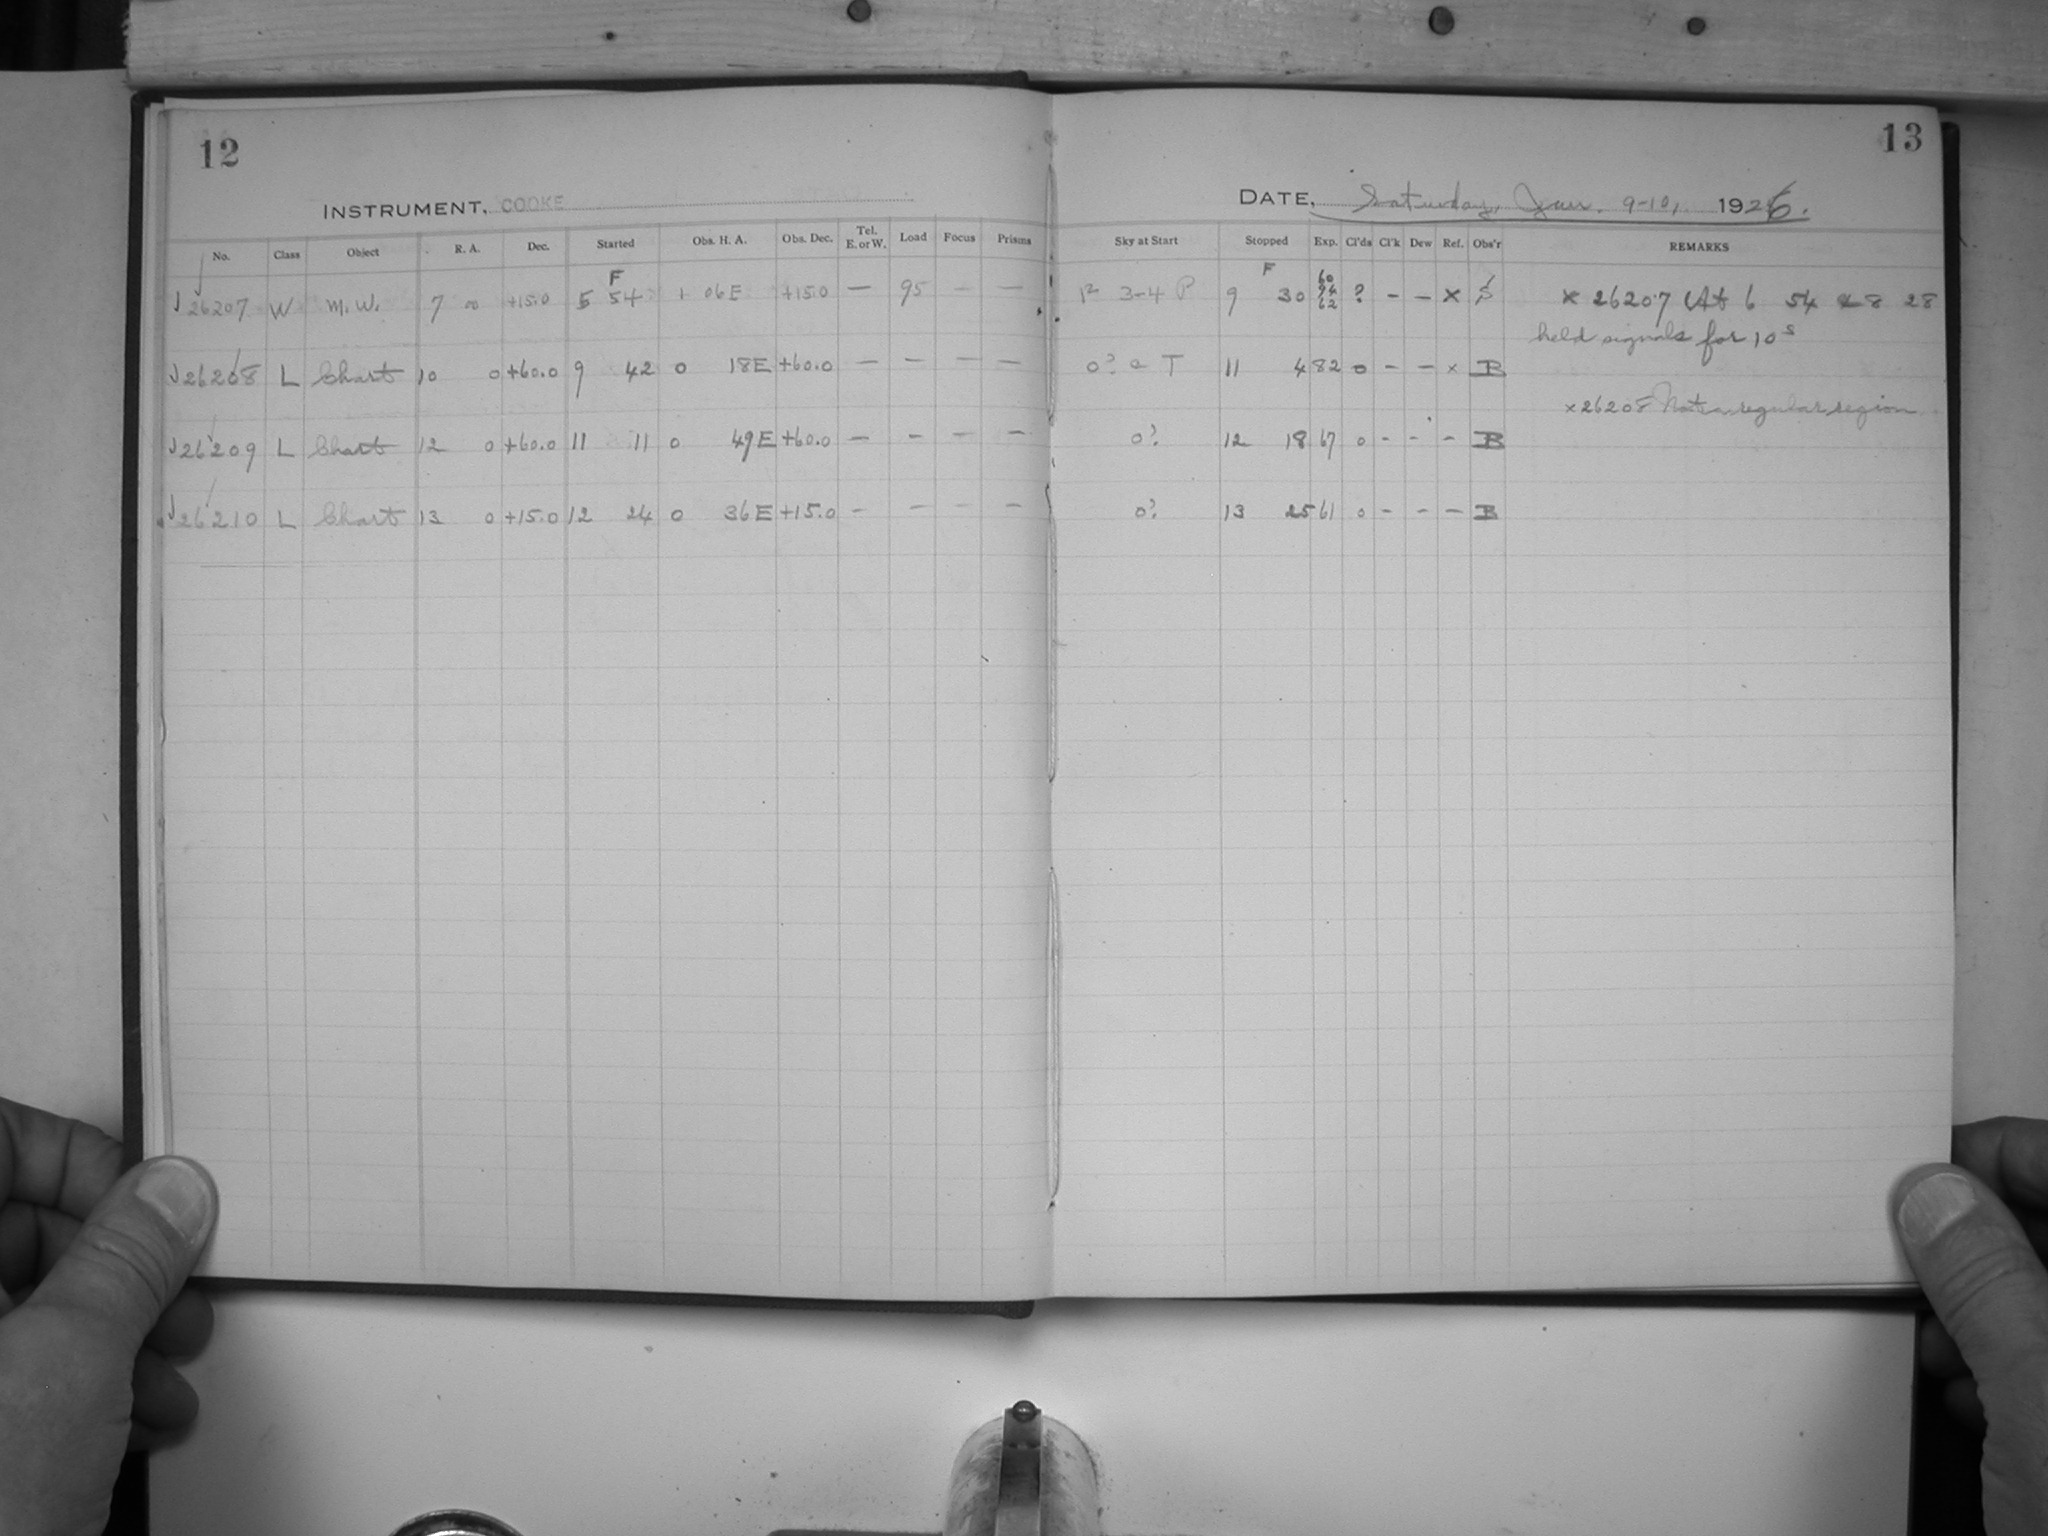 12
INSTRUMENT, COOKE
No. Class Object R. A. Dec. Started Obs. H. A. Obs. Dec. Tel. E. or W. Load Focus Prisms
F
J 26207 W M. W. 7 00 +15.0 5 54 1 06 E +15.0 — 95 — —
J 26208 L Chart 10 0 +60.0 9 42 0 18 E +60.0 — — — —
J 26209 L Chart 12 0 +60.0 11 11 0 49 E +60.0 — — — —
J 26210 L Chart 13 0 +15.0 12 24 0 36 E +15.0 — — — —
13
DATE, Saturday, Jan. 9-10, 1926.
Sky at Start Stopped Exp. Cl'ds Cl'k Dew Ref. Obs'r REMARKS
F
3-4 P 9 30 60 94 62 ? — — x S x 26207 At 6 54 & 8 28
held signals for 10s
0? a T 11 4 82 0 — — x B
x 26208 Not a regular region
0? 12 18 67 0 — — — B
0? 13 25 61 0 — — — B